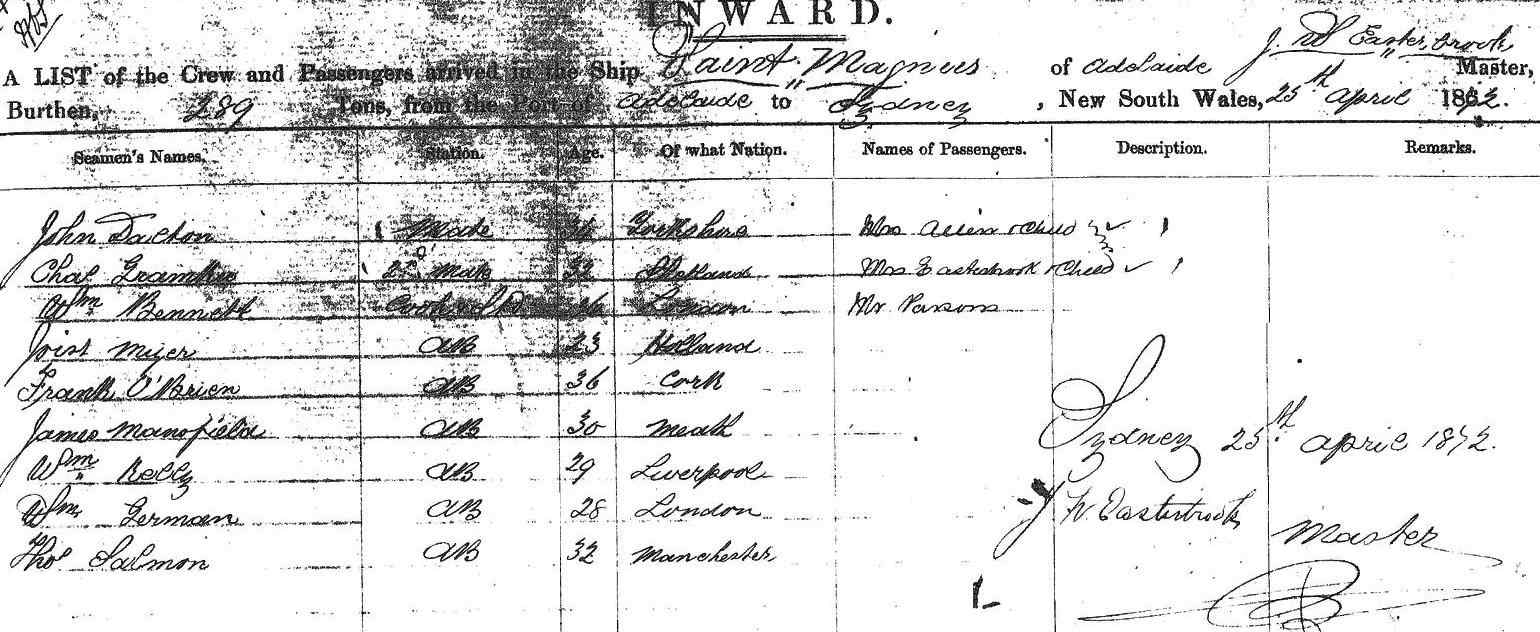 INWARD.
Saint Magnus J. W. Easterbrook
A LIST of the Crew and Passengers arrived in the Ship of Adelaide Master,
Burthen, 289 Tons, from the Port of Adelaide to Sydney, New South Wales, 25th April 1872.
Seamen's Names. Station. Age. Of what Nation. Names of Passengers. Description. Remarks.
John Dalton Mate 36 Yorkshire Mrs & Child
Chas 2nd Mate 32 Shetland Mrs Easterbrook & Child
Wm Bennett Cook & Std 26 London Mr Parsons
Joist Mijer AB 23 Holland
Frank O'Brien AB 36 Cork
James Mansfield AB 30 Meath
Wm Kelly AB 29 Liverpool
Wm German AB 28 London
Thos Salmon AB 32 Manchester
Sydney 25th April 1872.
J W. Easterbrook
Master